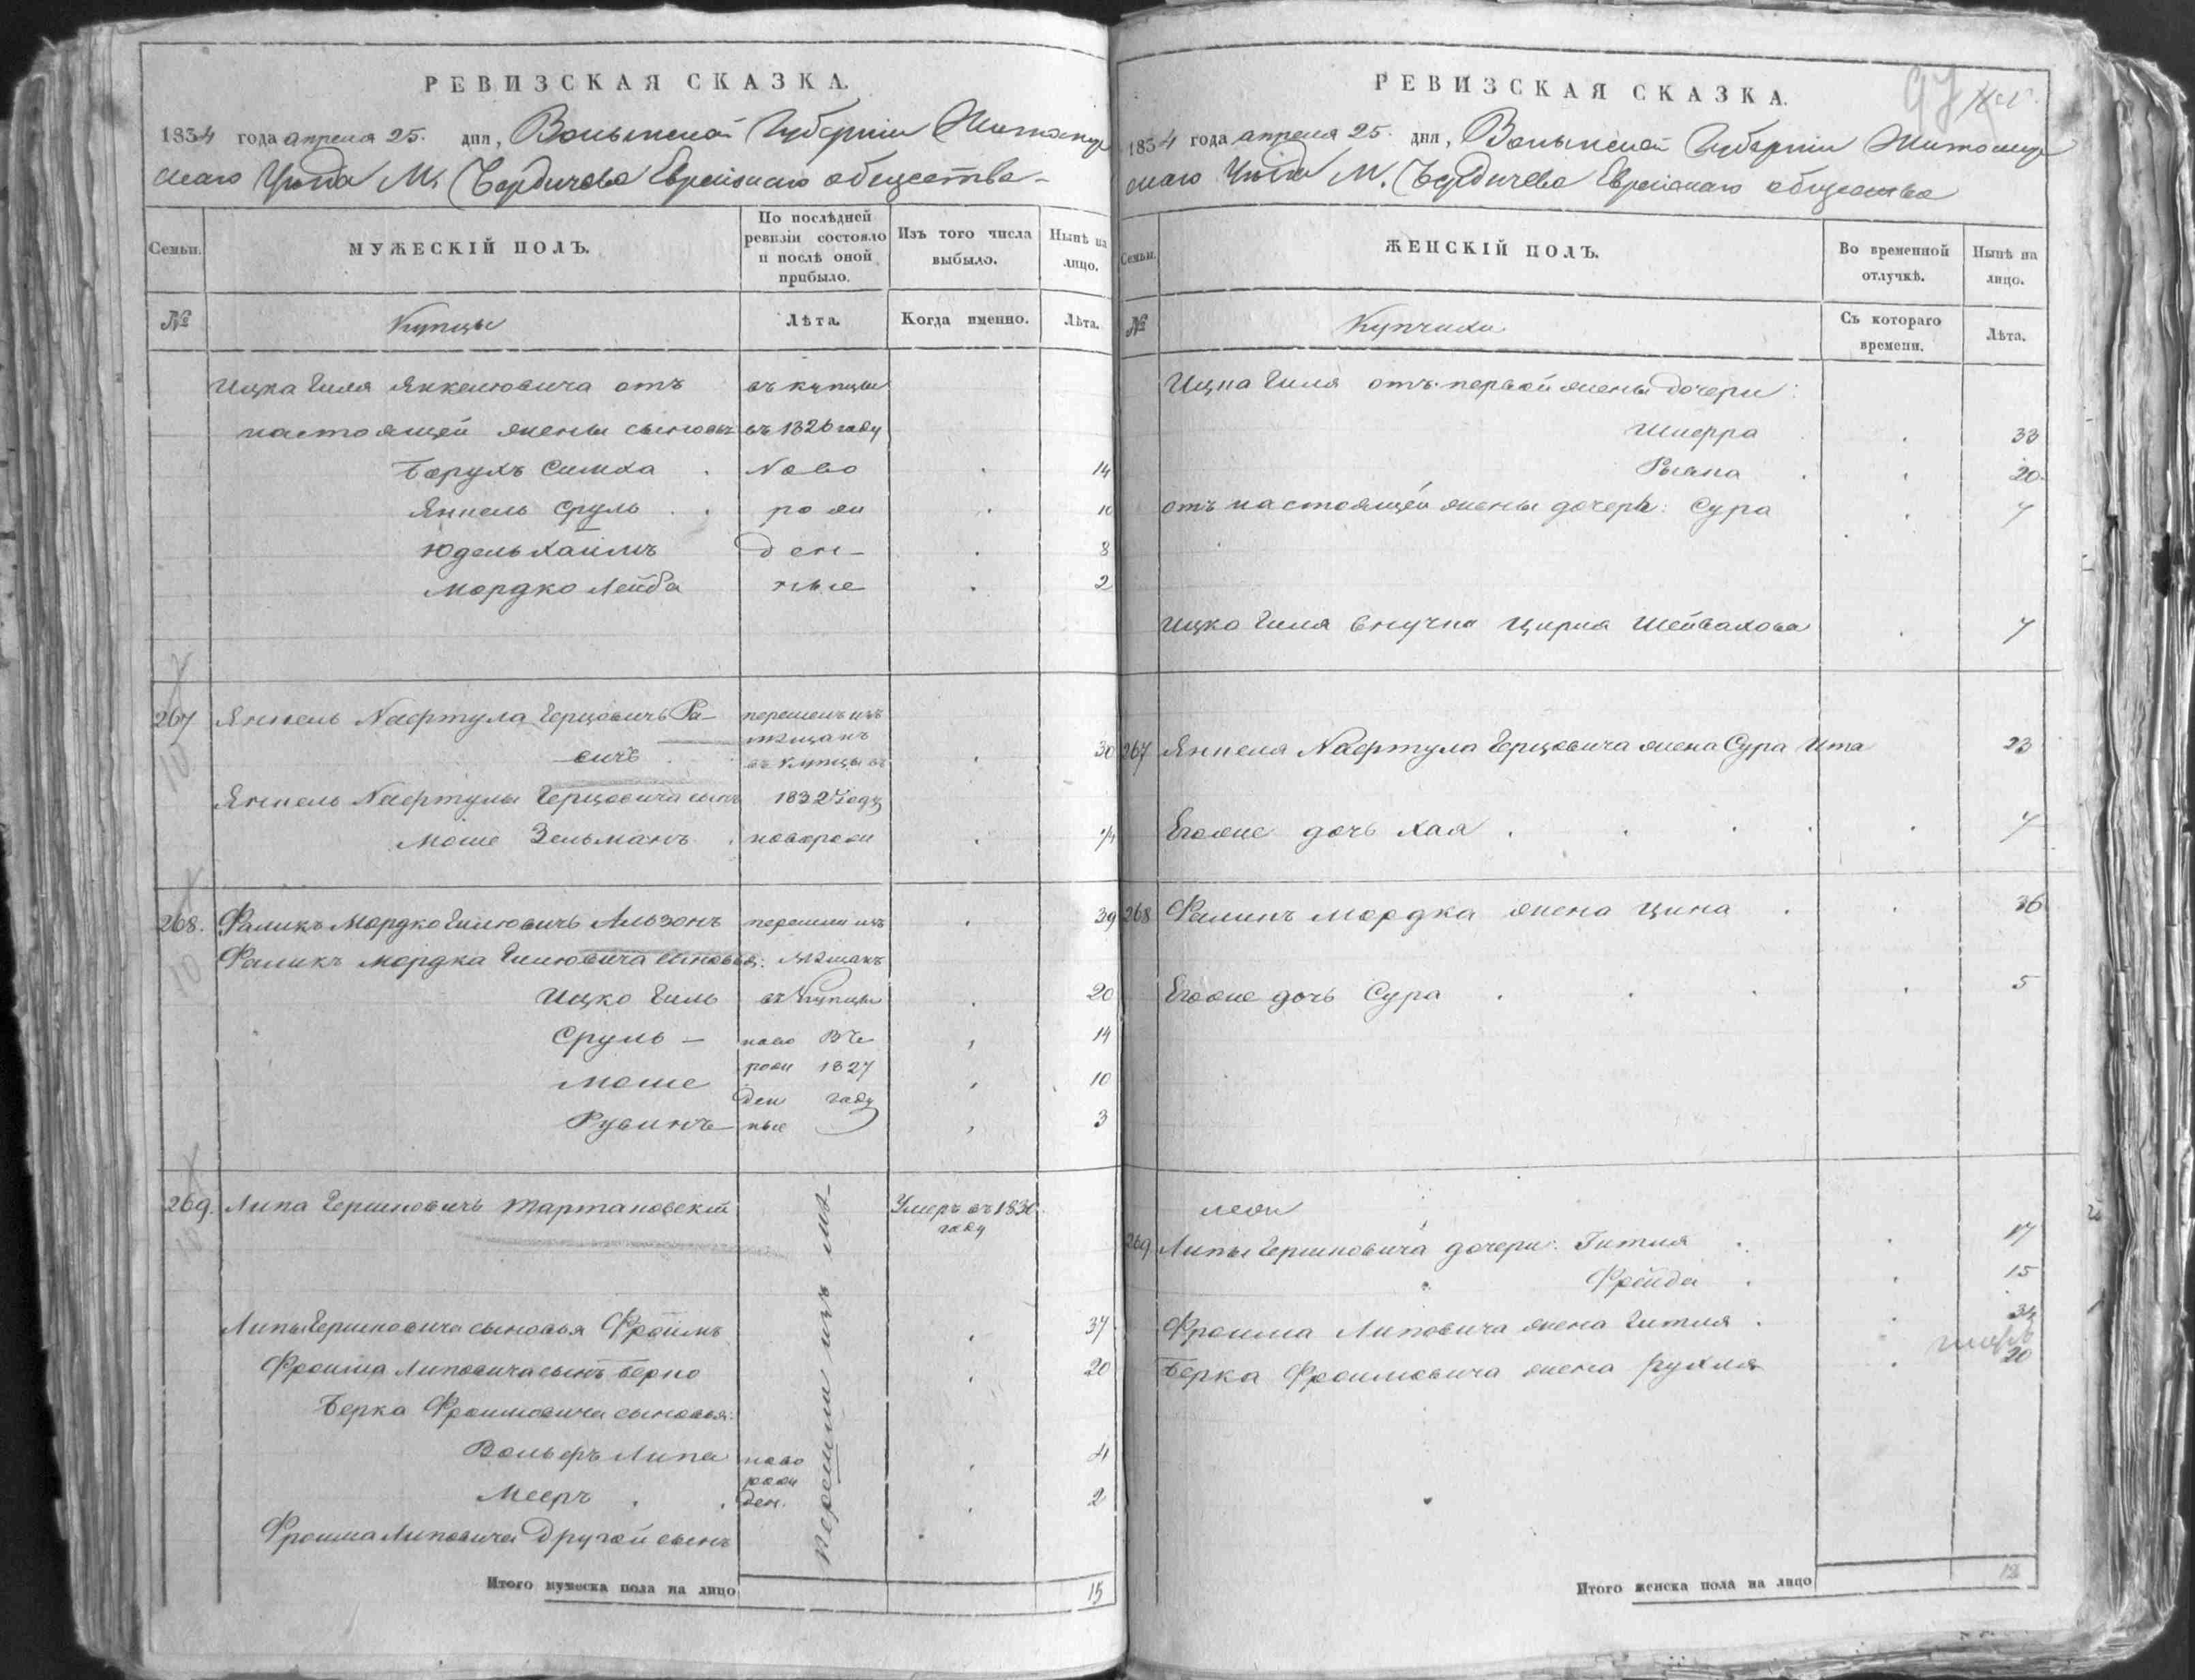 РЕВИЗСКАЯ СКАЗКА.
1834 года апреля 25. дня, Волынской Губерніи Житомир
скаго Уѣзда М. Бердичева Еврейскаго общества
Семьи.
МУЖЕСКІЙ ПОЛЪ.
По послѣдней ревизіи состояло и послѣ оной прибыло.
Изъ того числа выбыло.
Нынѣ на лицо.
№
Купцы
Лѣта.
Когда именно.
Лѣта.
Ицка Гиля Янкелювича отъ въ купцы
настоящей жены сыновья въ 1826 году
Борухъ Симха ново 14
Янкель Сруль рож 10
Юдель Хаимъ ден- 8
Мордко Лейба ные 2
267 Янкель Нафтула Герцовичъ Ра- перешелъ изъ
мѣщанъ
вичъ въ купцы въ 30
Янкель Нафтулы Герцовича сынъ 1832 году
Моше Зельманъ новорож
268. Фаликъ Мордко Гилювичъ Альзонъ перешли изъ 39
Фаликъ Мордка Гилювича сыновья: мѣщанъ
Ицко Гиль въ купцы 20
Сруль - ново въ 14
Моше рож 1827 10
ден году
Рувинъ ные 3
269. Липа Гершковичъ Тартаковскій Умеръ въ 1830
году
Липы Гершковича сыновья Фроимъ 37
Фроима Липовича сынъ Берко 20
Берка Фроимовича сыновья:
Вольфъ Липа ново 4
рож
Мееръ ден. 2
Фроима Липовича другой сынъ
перешли изъ мѣ-
Итого мужеска пола на лицо 15
97
РЕВИЗСКАЯ СКАЗКА.
1834 года апреля 25. дня, Волынской Губерніи Житомир
скаго Уѣзда М. Бердичева Еврейскаго общества
Семьи.
ЖЕНСКІЙ ПОЛЪ.
Во временной отлучкѣ.
Нынѣ на лицо.
№
Купчихи
Съ котораго времени.
Лѣта.
Ицка Гиля отъ первой жены дочери:
Шифра 33
Рывка 20
отъ настоящей жены дочерь: Сура 7
Ицко Гиля внучка Цирля Шейвахова 7
267 Янкеля Нафтула Герцовича жена Сура Ита 23
Егоже дочь Хая 7
268 Фаликъ Мордка жена Цина 36
Егоже дочь Сура 5
269 Липы Гершковича дочери: Гитля 17
Фрейда 15
Фроима Липовича жена Гитля 34
Берка Фроимовича жена Рухля 20
Итого женска пола на лицо 12